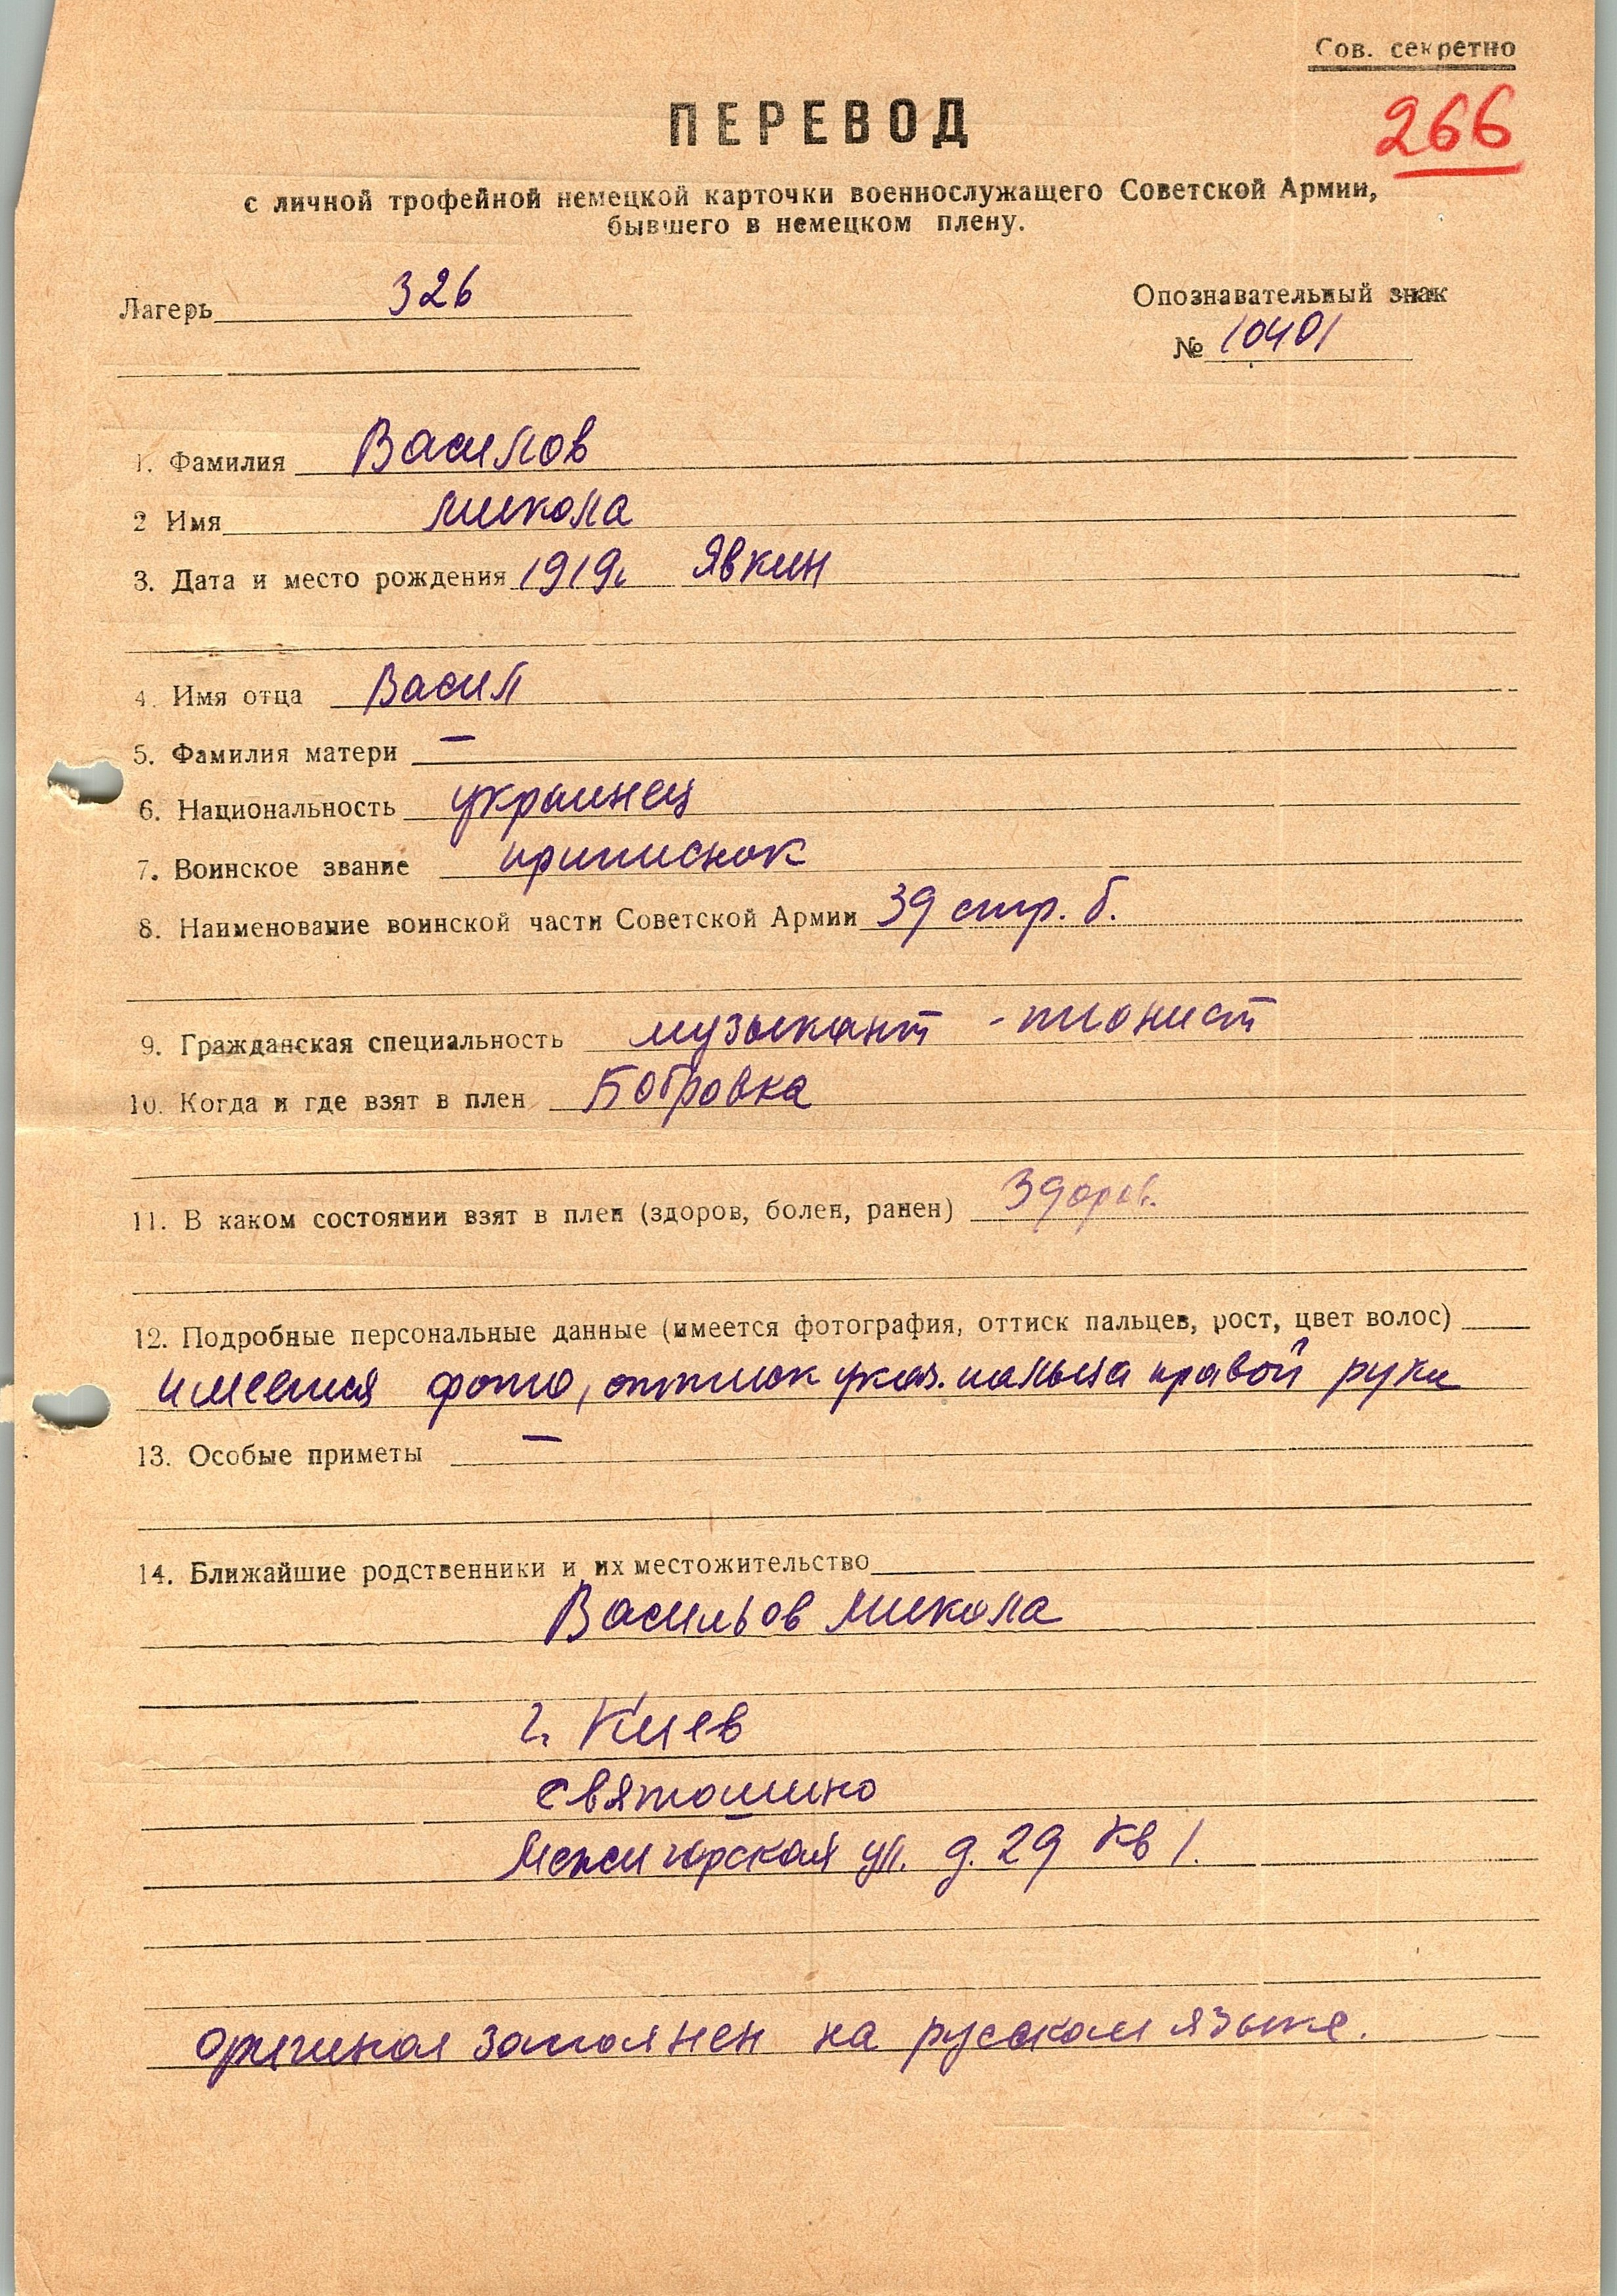 Сов. секретно
266
ПЕРЕВОД
с личной трофейной немецкой карточки военнослужащего Советской Армии,
бывшего в немецком плену.
Лагерь 326
Опознавательный знак
№ 10401
1. Фамилия Василов
2 Имя Микола
3. Дата и место рождения 1919г. Явкин
4. Имя отца Васил
5. Фамилия матери —
6. Национальность украинец
7. Воинское звание приписник
8. Наименование воинской части Советской Армии 39 стр. б.
9. Гражданская специальность музыкант - пионист
10. Когда и где взят в плен Бобровка
11. В каком состоянии взят в плен (здоров, болен, ранен) Здоров.
12. Подробные персональные данные (имеется фотография, оттиск пальцев, рост, цвет волос)
имеется фото, оттиск указ. пальца правой руки
13. Особые приметы —
14. Ближайшие родственники и их местожительство
Васильов Микола
г. Киев
Святошино
Межигорская ул. д. 29 кв 1.
оригинал заполнен на русском языке.